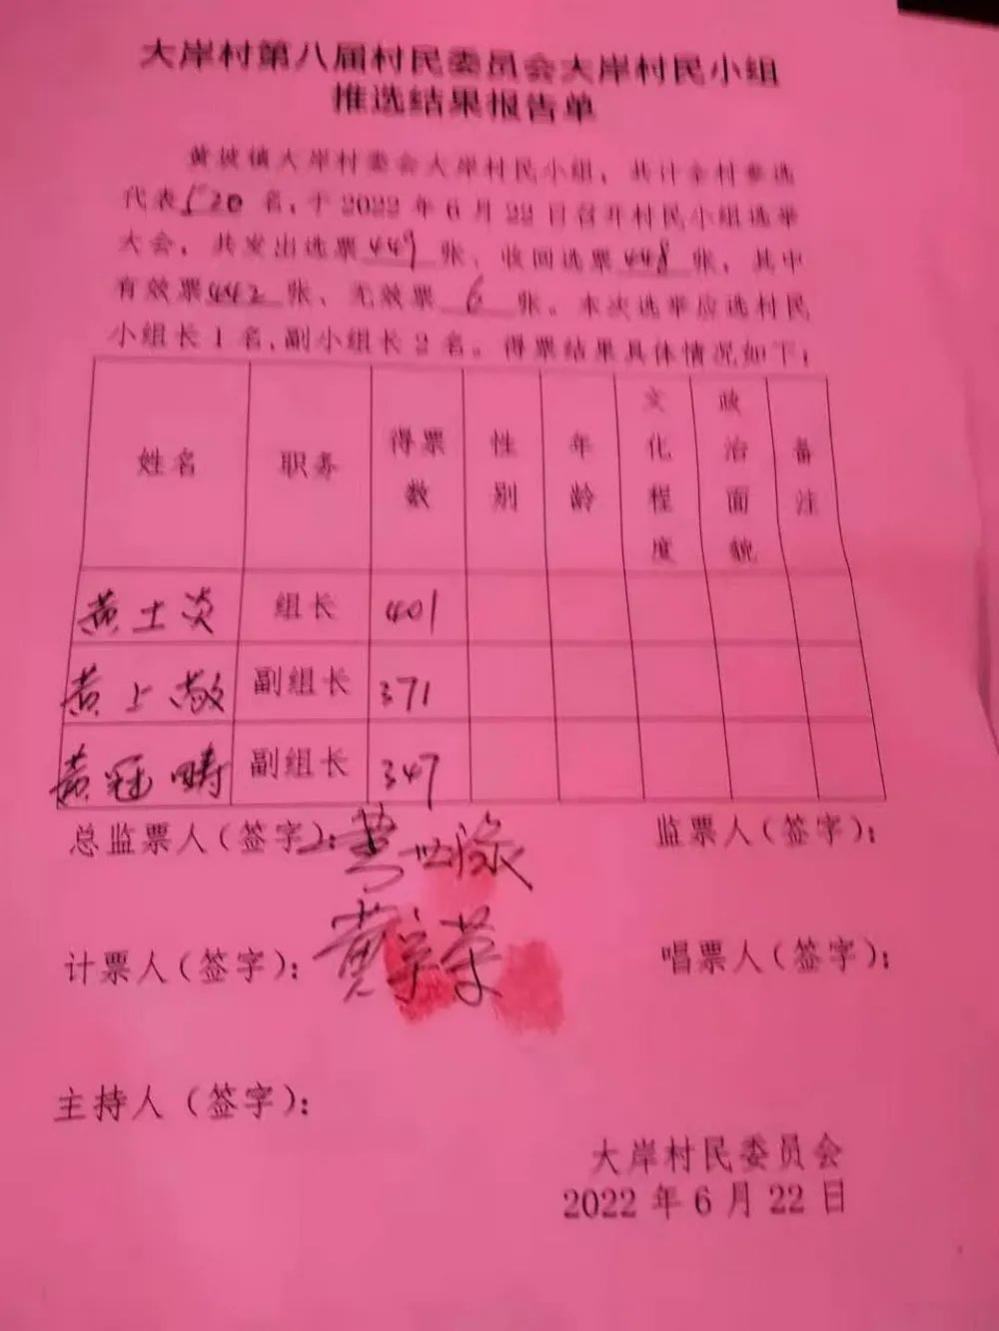 大岸村第八届村民委员会大岸村民小组
推选结果报告单
黄坡镇大岸村委会大岸村民小组，共计全村参选
代表520名，于2022年6月22日召开村民小组选举
大会，共发出选票449张、收回选票448张，其中
有效票442张、无效票6张。本次选举应选村民
小组长1名，副小组长2名。得票结果具体情况如下：
姓名 职务 得票数 性别 年龄 文化程度 政治面貌 备注
黄土炎 组长 401
黄上敬 副组长 371
黄冠畴 副组长 347
总监票人（签字）： 监票人（签字）：
计票人（签字）：黄 荣 唱票人（签字）：
主持人（签字）：
大岸村民委员会
2022年6月22日